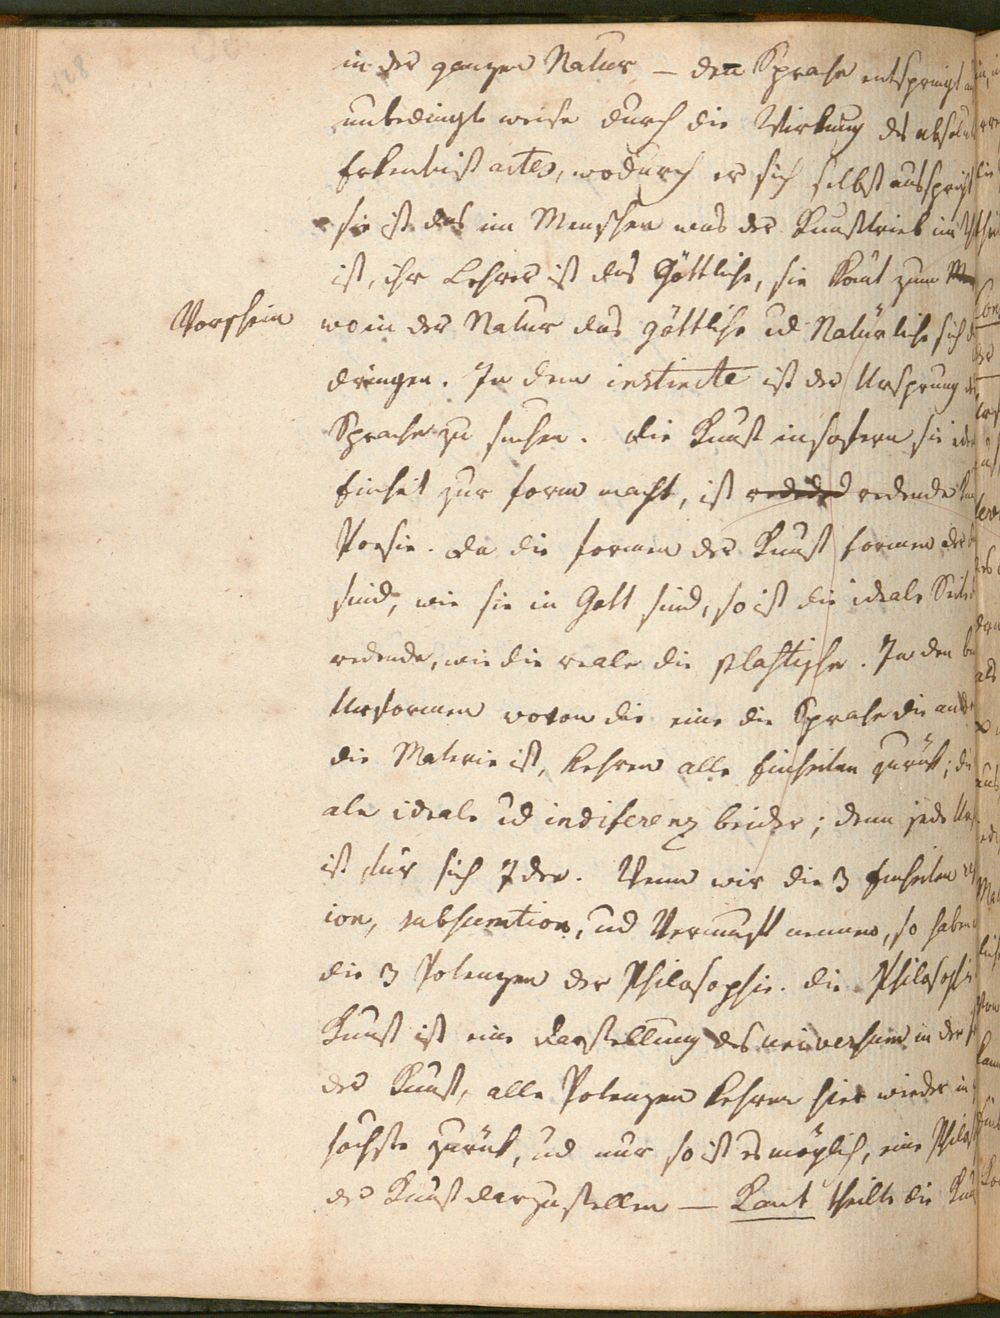 128
in der ganzen Natur – den Sprache entspringt
unbedingte weise durch die Wirkung des absolu
Erkentniß actes, wodurch er sich selbst ausspricht
sie ist das im Menschen was der Kunsttrieb im
ist, ihr Lehrer ist das Göttliche, sie komt zum
Vorschein
wo in der Natur das göttliche ud Natürliche sich
dringen. In dem instincte ist der Ursprung der
Sprache zu suchen. die Kunst insofern sie
Einheit zur form macht, ist redende
Poesie. da die formen der Kunst formen der
sind, wie sie in Gott sind, so ist die ideale Seite
redende, wie die reale die plastische. In den
Urformen wovon die eine die Sprache die ande
die Materie ist, kehren alle Einheiten zurük; die
ale ideale ud indiferenz beider; denn jede
ist für sich Idee. Wenn wir die 3 Einheiten
ion, subsumtion, ud Vernunft nennen, so haben
die 3 Potenzen der Philosophie. die Philosophi
Kunst ist eine darstellung des universum in der
der Kunst, alle Potenzen kehren hier wieder in
höchste zurük, ud nur so ist es möglich, eine Philos
der Kunst darzustellen – Kant theilte die Kun